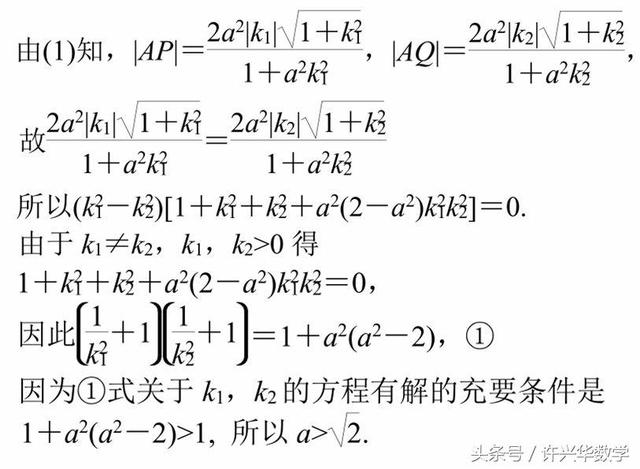 由(1)知，|AP|=\frac{2a^2|k_1|\sqrt{1+k_1^2}}{1+a^2k_1^2}，|AQ|=\frac{2a^2|k_2|\sqrt{1+k_2^2}}{1+a^2k_2^2}，
故\frac{2a^2|k_1|\sqrt{1+k_1^2}}{1+a^2k_1^2}=\frac{2a^2|k_2|\sqrt{1+k_2^2}}{1+a^2k_2^2}
所以(k_1^2-k_2^2)[1+k_1^2+k_2^2+a^2(2-a^2)k_1^2k_2^2]=0.
由于 k_1≠k_2，k_1，k_2>0 得
1+k_1^2+k_2^2+a^2(2-a^2)k_1^2k_2^2=0，
因此(\frac{1}{k_1^2}+1)(\frac{1}{k_2^2}+1)=1+a^2(a^2-2)，①
因为①式关于 k_1，k_2 的方程有解的充要条件是
1+a^2(a^2-2)>1, 所以 a>\sqrt{2}.
头条号／许兴华数学